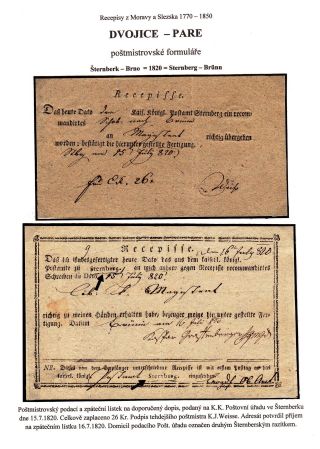 Recepisy z Moravy a Slezska 1770 – 1850
DVOJICE – PARE
poštmistrovské formuláře
Šternberk – Brno = 1820 = Sternberg – Brünn
Recepisse.
Das heute Dato den Kais. Königl. Postamt Sternberg ein recom-
mandirtes Schrb. nach Brünn
an Magistrat richtig übergeben
worden; bestättigt die hierunter gestellte Fertigung.
15 July 820
für Ck. 26 x
Weiss
9 Recepisse. den 16 July 820
Das ich Endesgefertigter heute Dato das aus dem kaiserl. königl.
Postamte zu Sternberg an mich anher gegen Recepisse recommandirte
Schreiben
Magistrat
richtig zu meinen Händen erhalten habe, bezeuge meine hier unter gestellte Fer-
tigung. Datum Brünn 16 July 820
NB. Dieses von dem
Recepisse ist mit erstem Postag an das
Poštmistrovský podací a zpáteční lístek na doporučený dopis, podaný na K.K. Poštovní úřadu ve Šternberku
dne 15.7.1820. Celkově zaplaceno 26 Kr. Podpis tehdejšího poštmistra K.J.Weisse. Adresát potvrdil příjem
na zpátečním lístku 16.7.1820. Domicil podacího Pošt. úřadu označen druhým Šternberským razítkem.